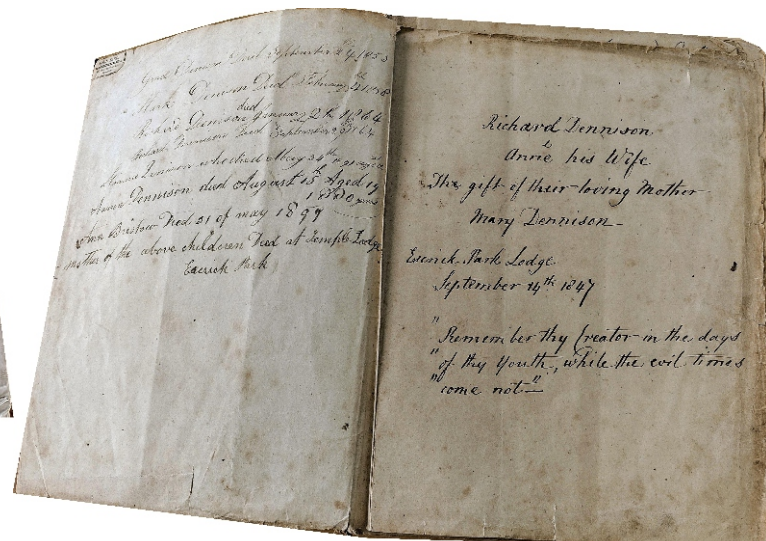 Died September 1853
Mark Denison Died February 1858
died
Richard Denison January 2th 1864
Richard Dennison Died September 1864
Dennison who died May
Annie Dennison died August 15th Aged 19
1880 years
Ann Bristow Died 21 of may 1897
mother of the above childeren Died at Temple Lodge
Escrick Park
Richard Dennison
& Annie his Wife
The gift of their loving Mother
Mary Dennison -
Escrick Park Lodge
September 14th 1847
"Remember thy Creator in the days
"of thy Youth, while the evil times
"come not"